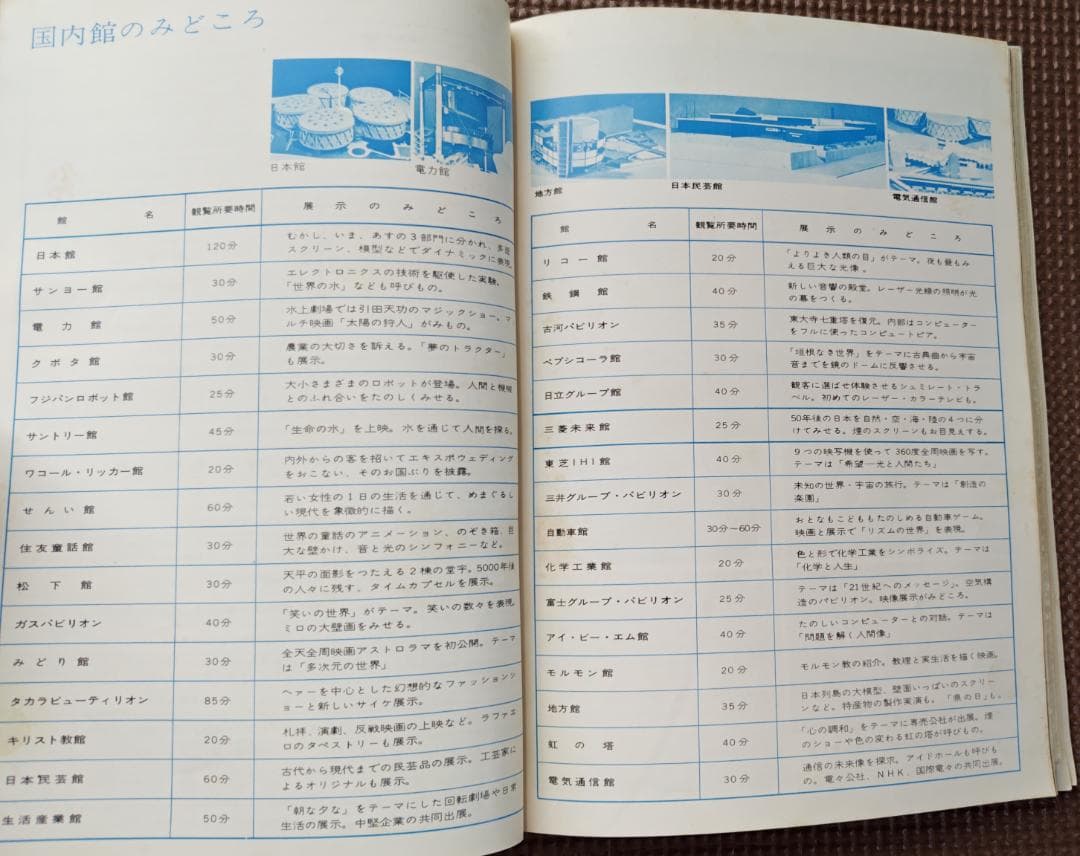 国内館のみどころ
日本館
電力館
館 名 観覧所要時間 展示のみどころ
日本館 120分 むかし、いま、あすの3部門に分かれ、多面
スクリーン、模型などでダイナミックに表現。
サンヨー館 30分 エレクトロニクスの技術を駆使した実験。
「世界の水」なども呼びもの。
電力館 50分 水上劇場では引田天功のマジックショー。マ
ルチ映画「太陽の狩人」がみもの。
クボタ館 30分 農業の大切さを訴える。「夢のトラクター」
も展示。
フジパンロボット館 25分 大小さまざまのロボットが登場。人間と機械
とのふれ合いをたのしくみせる。
サントリー館 45分 「生命の水」を上映。水を通じて人間を探る。
ワコール・リッカー館 20分 内外からの客を招いてエキスポウェディング
をおこない、そのお国ぶりを披露。
せんい館 60分 若い女性の1日の生活を通じて、めまぐるし
い現代を象徴的に描く。
住友童話館 30分 世界の童話のアニメーション、のぞき箱、巨
大な壁かけ、音と光のシンフォニーなど。
松下館 30分 天平の面影をつたえる2棟の堂宇。5000年後
の人々に残す、タイムカプセルを展示。
ガスパビリオン 40分 「笑いの世界」がテーマ。笑いの数々を表現。
ミロの大壁画をみせる。
みどり館 30分 全天全周映画アストロラマを初公開。テーマ
は「多次元の世界」
タカラビューティリオン 85分 ヘァーを中心とした幻想的なファッションシ
ョーと新しいサイケ展示。
キリスト教館 20分 札拝、演劇、反戦映画の上映など。ラファエ
ロのタペストリーも展示。
日本民芸館 60分 古代から現代までの民芸品の展示。工芸家に
よるオリジナルも展示。
生活産業館 50分 「朝な夕な」をテーマにした回転劇場や日常
生活の展示。中堅企業の共同出展。
地方館
日本民芸館
電気通信館
館 名 観覧所要時間 展示のみどころ
リコー館 20分 「よりよき人類の目」がテーマ。夜も昼もみ
える巨大な光像。
鉄鋼館 40分 新しい音響の殿堂。レーザー光線の照明が光
の幕をつくる。
古河パビリオン 35分 東大寺七重塔を復元。内部はコンピューター
をフルに使ったコンピュートピア。
ペプシコーラ館 30分 「垣根なき世界」をテーマに古典曲から宇宙
音までを鏡のドームに反響させる。
日立グループ館 40分 観客に選ばせ体験させるシュミレート・トラ
ベル。初めてのレーザー・カラーテレビも。
三菱未来館 25分 50年後の日本を自然・空・海・陸の4つに分
けてみせる。煙のスクリーンもお目見えする。
東芝IHI館 40分 9つの映写機を使って360度全周映画を写す。
テーマは「希望―光と人間たち」
三井グループ・パビリオン 30分 未知の世界・宇宙の旅行。テーマは「創造の
楽園」
自動車館 30分〜60分 おとなもこどももたのしめる自動車ゲーム。
映画と展示で「リズムの世界」を表現。
化学工業館 20分 色と形で化学工業をシンボライズ。テーマは
「化学と人生」
富士グループ・パビリオン 25分 テーマは「21世紀へのメッセージ」。空気構
造のパビリオン。映像展示がみどころ。
アイ・ビー・エム館 40分 たのしいコンピューターとの対話。テーマは
「問題を解く人間像」
モルモン館 20分 モルモン教の紹介。教理と実生活を描く映画。
地方館 35分 日本列島の大模型、壁面いっぱいのスクリー
ンなど。特産物の製作実演も。「県の日」も。
虹の塔 40分 「心の調和」をテーマに専売公社が出展。煙
のショーや色の変わる虹の塔が呼びもの。
電気通信館 30分 通信の未来像を探求。アイドホールも呼びも
の。電々公社、NHK、国際電々の共同出展。